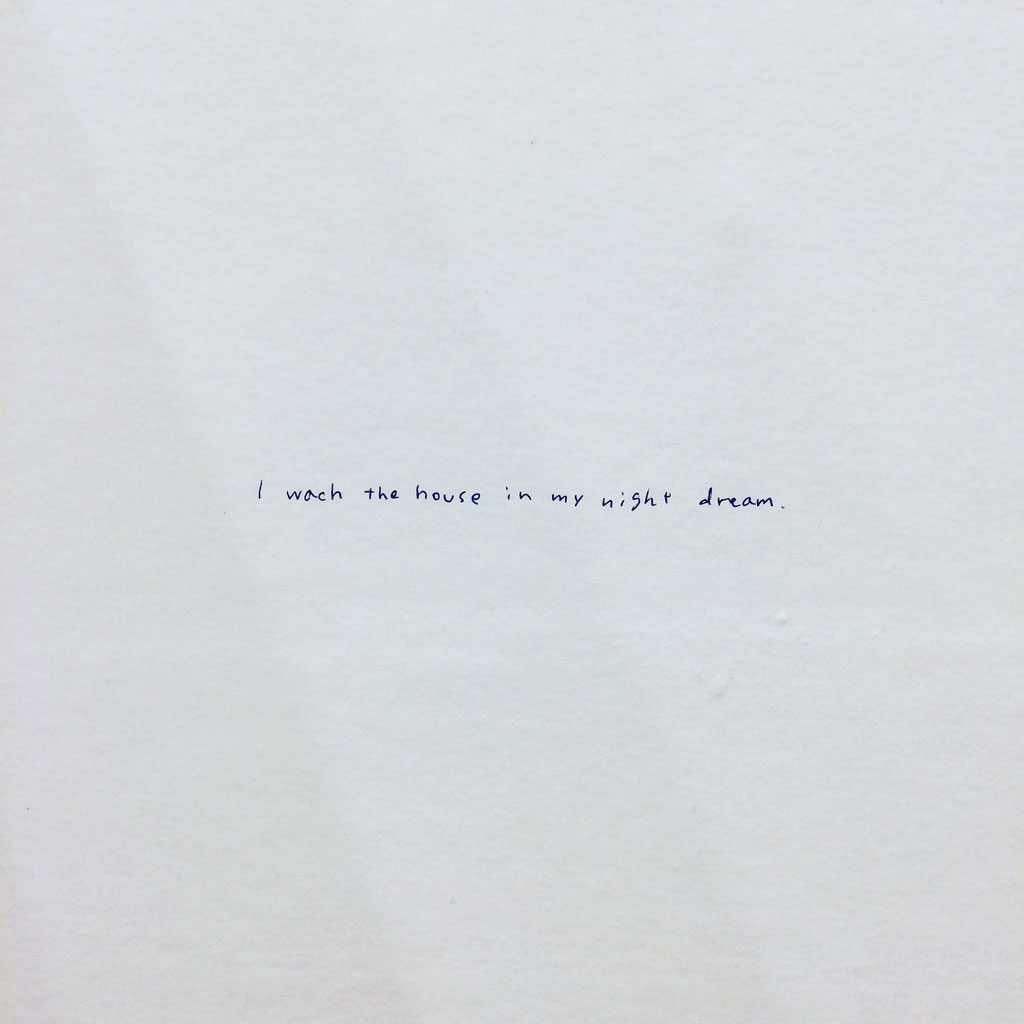 I wach the house in my night dream.